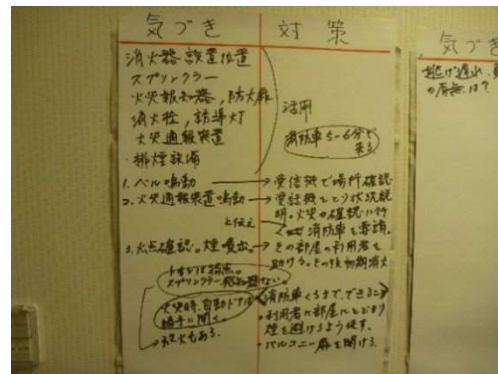 気づき
対策
消火器設置位置
スプリンクラー
火災報知器,防火扉
消火栓,誘導灯
火災通報装置
・排煙設備
活用
消防車5~6分で
来る
1.ベル鳴動→受信機で場所確認
2.火災通報装置鳴動→受話機をとり状況説
明。火災の確認に行
と伝え
消防車を要請。
3.火点確認。煙噴出→その部屋の利用者を
助ける。その後初期消火
スプリンクラー
火災時,自動ドアは
勝手に開く
放火もある。
消防車くるまで,できること
・利用者に部屋にとどまり
煙を避けるよう促す。
・バルコニー扉を開ける。
気づき
逃げ遅れ
の有無は?